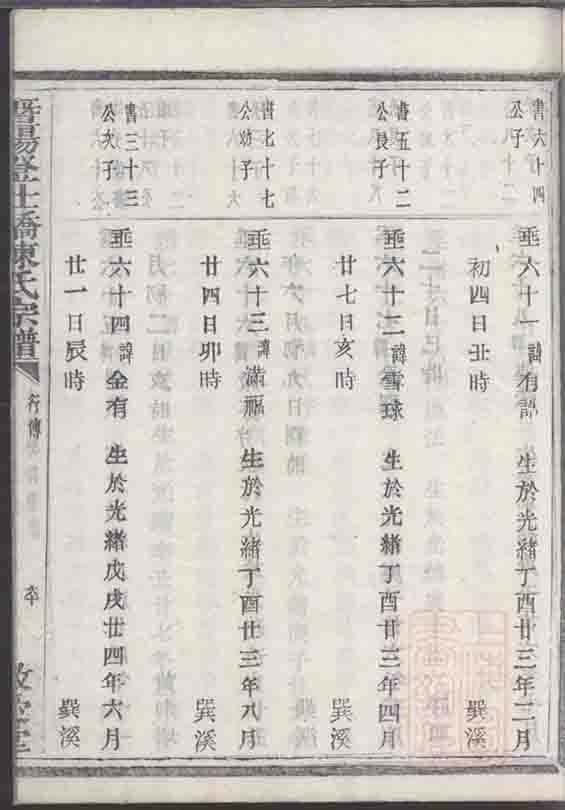 書六十四
公子
垂六十一 諱有 生於光緒丁酉廿三年二月
初四日丑時 巽溪
書五十二
公長子
垂六十二 諱雪球 生於光緒丁酉廿三年四月
廿七日亥時 巽溪
書七十七
公幼子
垂六十三 諱滿福 生於光緒丁酉廿三年八月
廿四日卯時 巽溪
書三十三
公次子
垂六十四 諱金有 生於光緒戊戌廿四年六月
廿一日辰時 巽溪
暨陽登仕橋陳氏宗譜 行傳